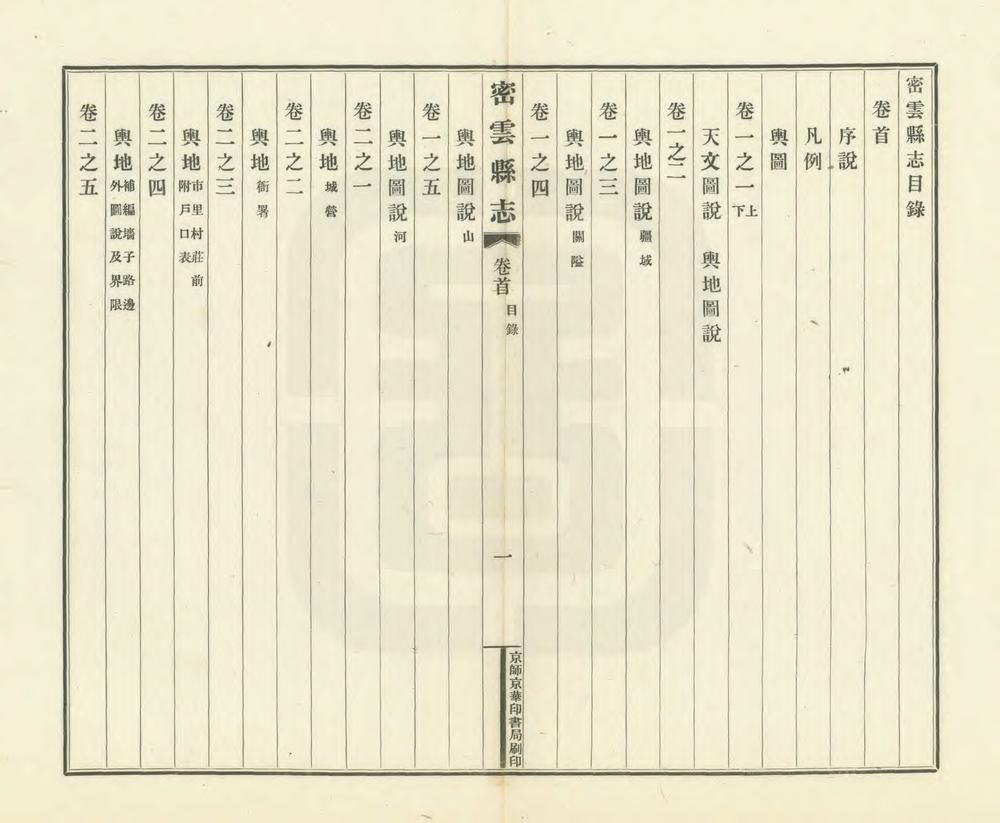 密雲縣志目錄
卷首
序說
凡例
輿圖
卷一之一上下
天文圖說　輿地圖說
卷一之二
輿地圖說疆域
卷一之三
輿地圖說關隘
卷一之四
密雲縣志
卷首目錄
一
京師京華印書局刷印
輿地圖說山
卷一之五
輿地圖說河
卷二之一
輿地城營
卷二之二
輿地衙署
卷二之三
輿地市里村莊前附戶口表
卷二之四
輿地補編墻子路邊外圖說及界限
卷二之五